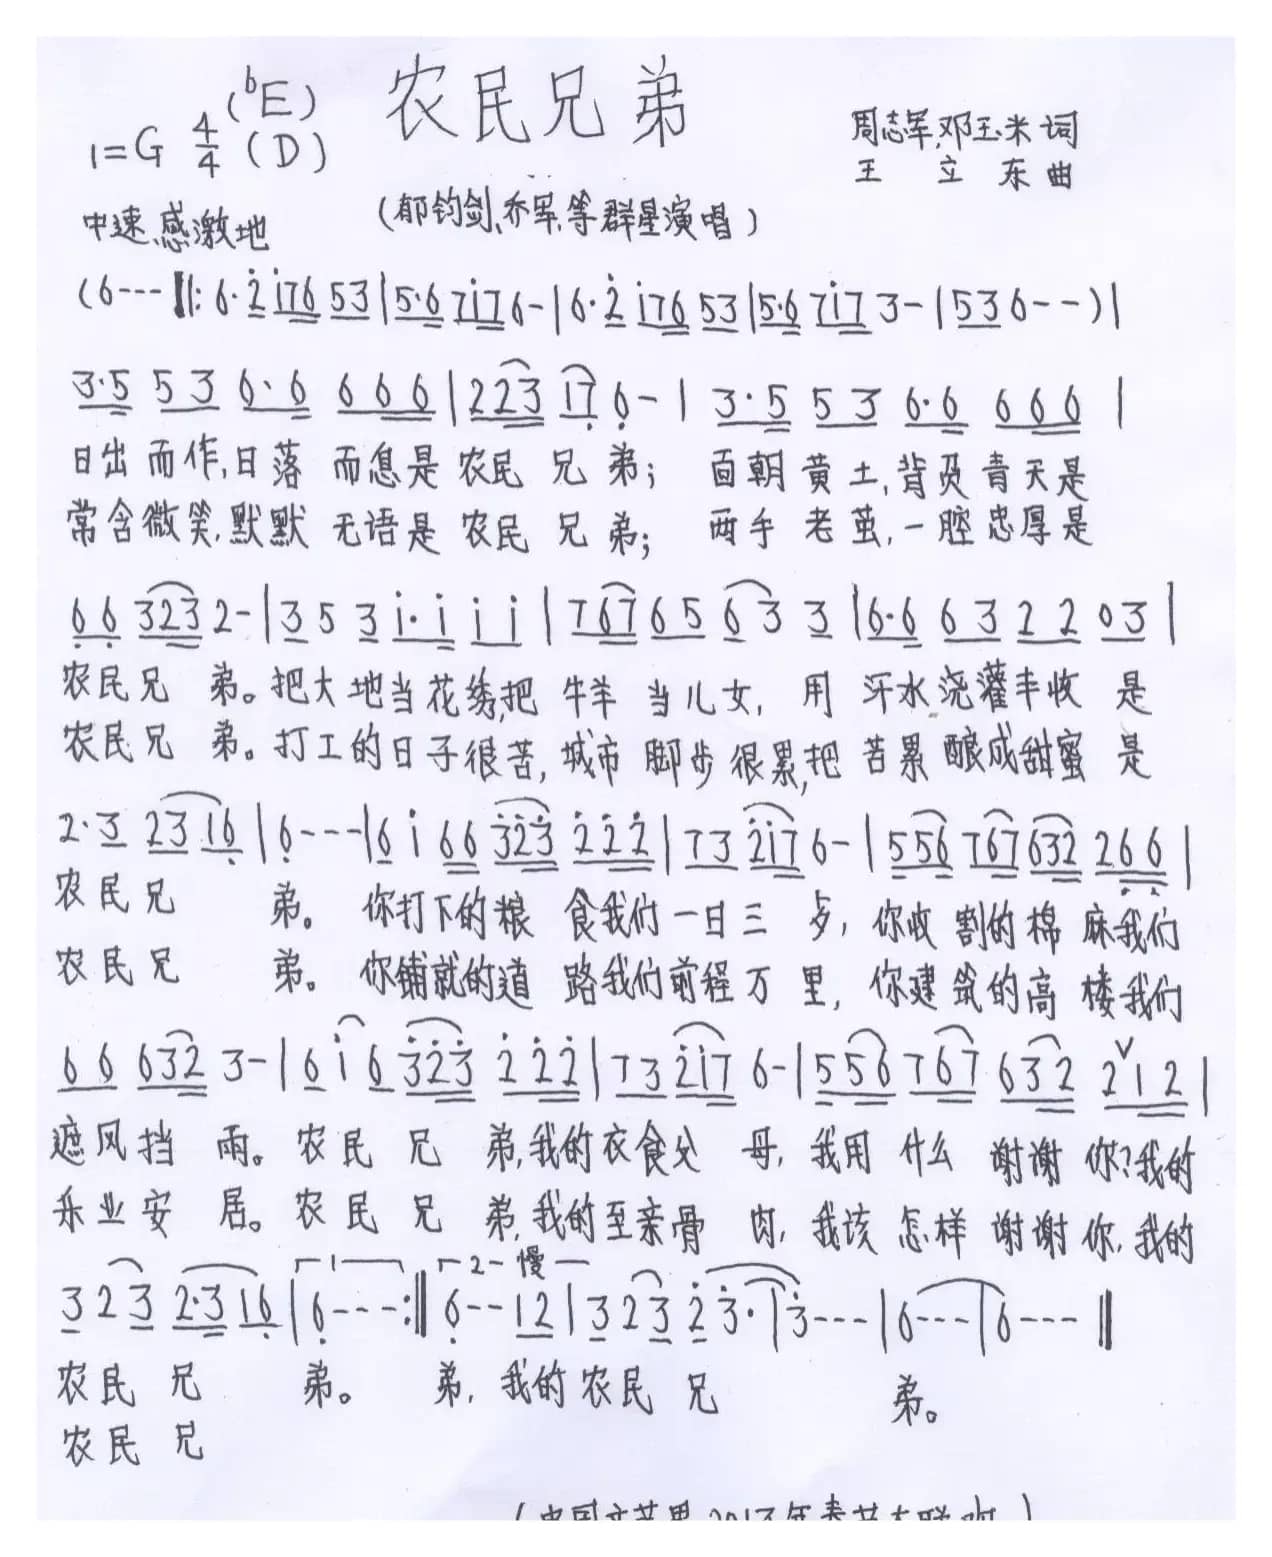 农民兄弟
(♭E)
1=G 4/4 (D)
周志军、邓玉米词
王立东曲
中速、感激地
(郁钧剑、乔军、等群星演唱)
(6--- ‖: 6·2̇ i76 53 | 5·6 7i7 6- | 6·2̇ i76 53 | 5·6 7i7 3- | 53 6--) |
3·5 53 6·6 666 | 223 17̣ 6̣- | 3·5 53 6·6 666 |
日出而作,日落而息是农民兄弟; 面朝黄土,背负青天是
常含微笑,默默无语是农民兄弟; 两手老茧,一腔忠厚是
6̣6̣ 323 2- | 3 5 3 i·i i i | 767 65 6 3 3 | 6·6 63 22 03 |
农民兄弟。把大地当花绣,把牛羊当儿女,用汗水浇灌丰收是
农民兄弟。打工的日子很苦,城市脚步很累,把苦累酿成甜蜜是
2·3 23 16̣ | 6̣--- | 6 i 66 3̇2̇3̇ 2̇2̇2̇ | 73 2̇i7 6- | 556 767 632 26̣6̣ |
农民兄弟。你打下的粮食我们一日三歺,你收割的棉麻我们
农民兄弟。你铺就的道路我们前程万里,你建筑的高楼我们
66 632 3- | 6 i 6 3̇2̇3̇ 2̇2̇2̇ | 73 2̇i7 6- | 556 767 632 2ˇ12 |
遮风挡雨。农民兄弟,我的衣食父母,我用什么谢谢你?我的
乐业安居。农民兄弟,我的至亲骨肉,我该怎样谢谢你,我的
1 2 慢
3 2 3 2·3 16̣ | 6̣--- :‖ 6̣-- 12 | 3 2 3 2̇ 3̇· | 3̇--- | 6--- | 6--- ‖
农民兄弟。弟,我的农民兄弟。
农民兄